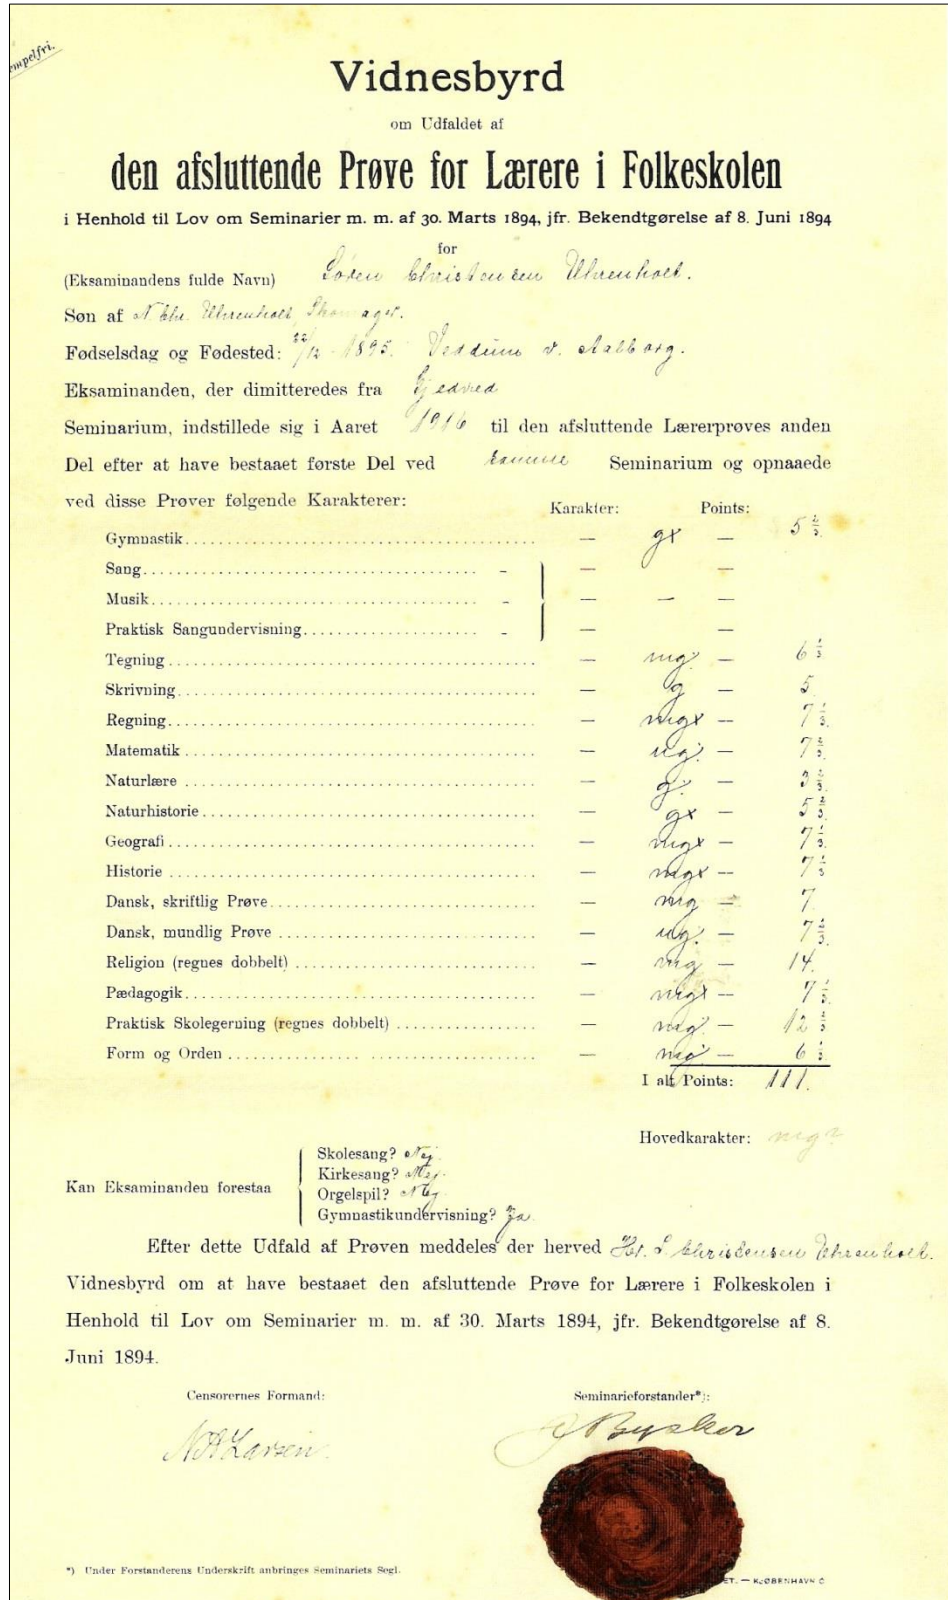 empelfri.
Vidnesbyrd
om Udfaldet af
den afsluttende Prøve for Lærere i Folkeskolen
i Henhold til Lov om Seminarier m. m. af 30. Marts 1894, jfr. Bekendtgørelse af 8. Juni 1894
for
(Eksaminandens fulde Navn) Søren Christensen Uhrenholt.
Søn af N. Chr. Uhrenholt,
Fødselsdag og Fødested: 22/12 1895. Veddum v. Aalborg.
Eksaminanden, der dimitteredes fra Gjedved
Seminarium, indstillede sig i Aaret 1916 til den afsluttende Lærerprøves anden
Del efter at have bestaaet første Del ved samme Seminarium og opnaaede
ved disse Prøver følgende Karakterer:
Karakter: Points:
Gymnastik — gx — 5 2/3.
Sang - — —
Musik - — – —
Praktisk Sangundervisning - — —
Tegning — mg. — 6 1/3
Skrivning — g — 5.
Regning — mgx — 7 1/3.
Matematik — ug. — 7 2/3.
Naturlære — g. — 3 2/3.
Naturhistorie — gx — 5 2/3.
Geografi — mgx — 7 1/3.
Historie — mgx — 7 1/3.
Dansk, skriftlig Prøve — mg — 7.
Dansk, mundlig Prøve — ug. — 7 2/3.
Religion (regnes dobbelt) — mg — 14.
Pædagogik — mgx — 7 1/3.
Praktisk Skolegerning (regnes dobbelt) — mg. — 12 2/3
Form og Orden — mg. — 6 1/3.
I alt Points: 111.
Hovedkarakter: mg
Kan Eksaminanden forestaa
Skolesang? Nej.
Kirkesang? Nej.
Orgelspil? Nej.
Gymnastikundervisning? Ja.
Efter dette Udfald af Prøven meddeles der herved Hr. S. Christensen Uhrenholt.
Vidnesbyrd om at have bestaaet den afsluttende Prøve for Lærere i Folkeskolen i
Henhold til Lov om Seminarier m. m. af 30. Marts 1894, jfr. Bekendtgørelse af 8.
Juni 1894.
Censorernes Formand: Seminarieforstander*):
N A Larsen. Byskov
*) Under Forstanderens Underskrift anbringes Seminariets Segl.
ET. — KJØBENHAVN C